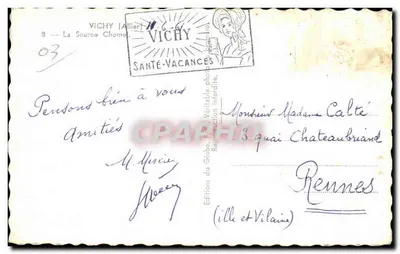 VICHY (Allier)
8 - La Source Chomel
03
VICHY
SANTÉ-VACANCES
Pensons bien à vous
amitiés
M. Mercier
Editions du Globe
Véritable photo
Reproduction interdite
CPAPHIL
Monsieur Madame Calté
3 quai Chateaubriand
Rennes
(ille et Vilaine)